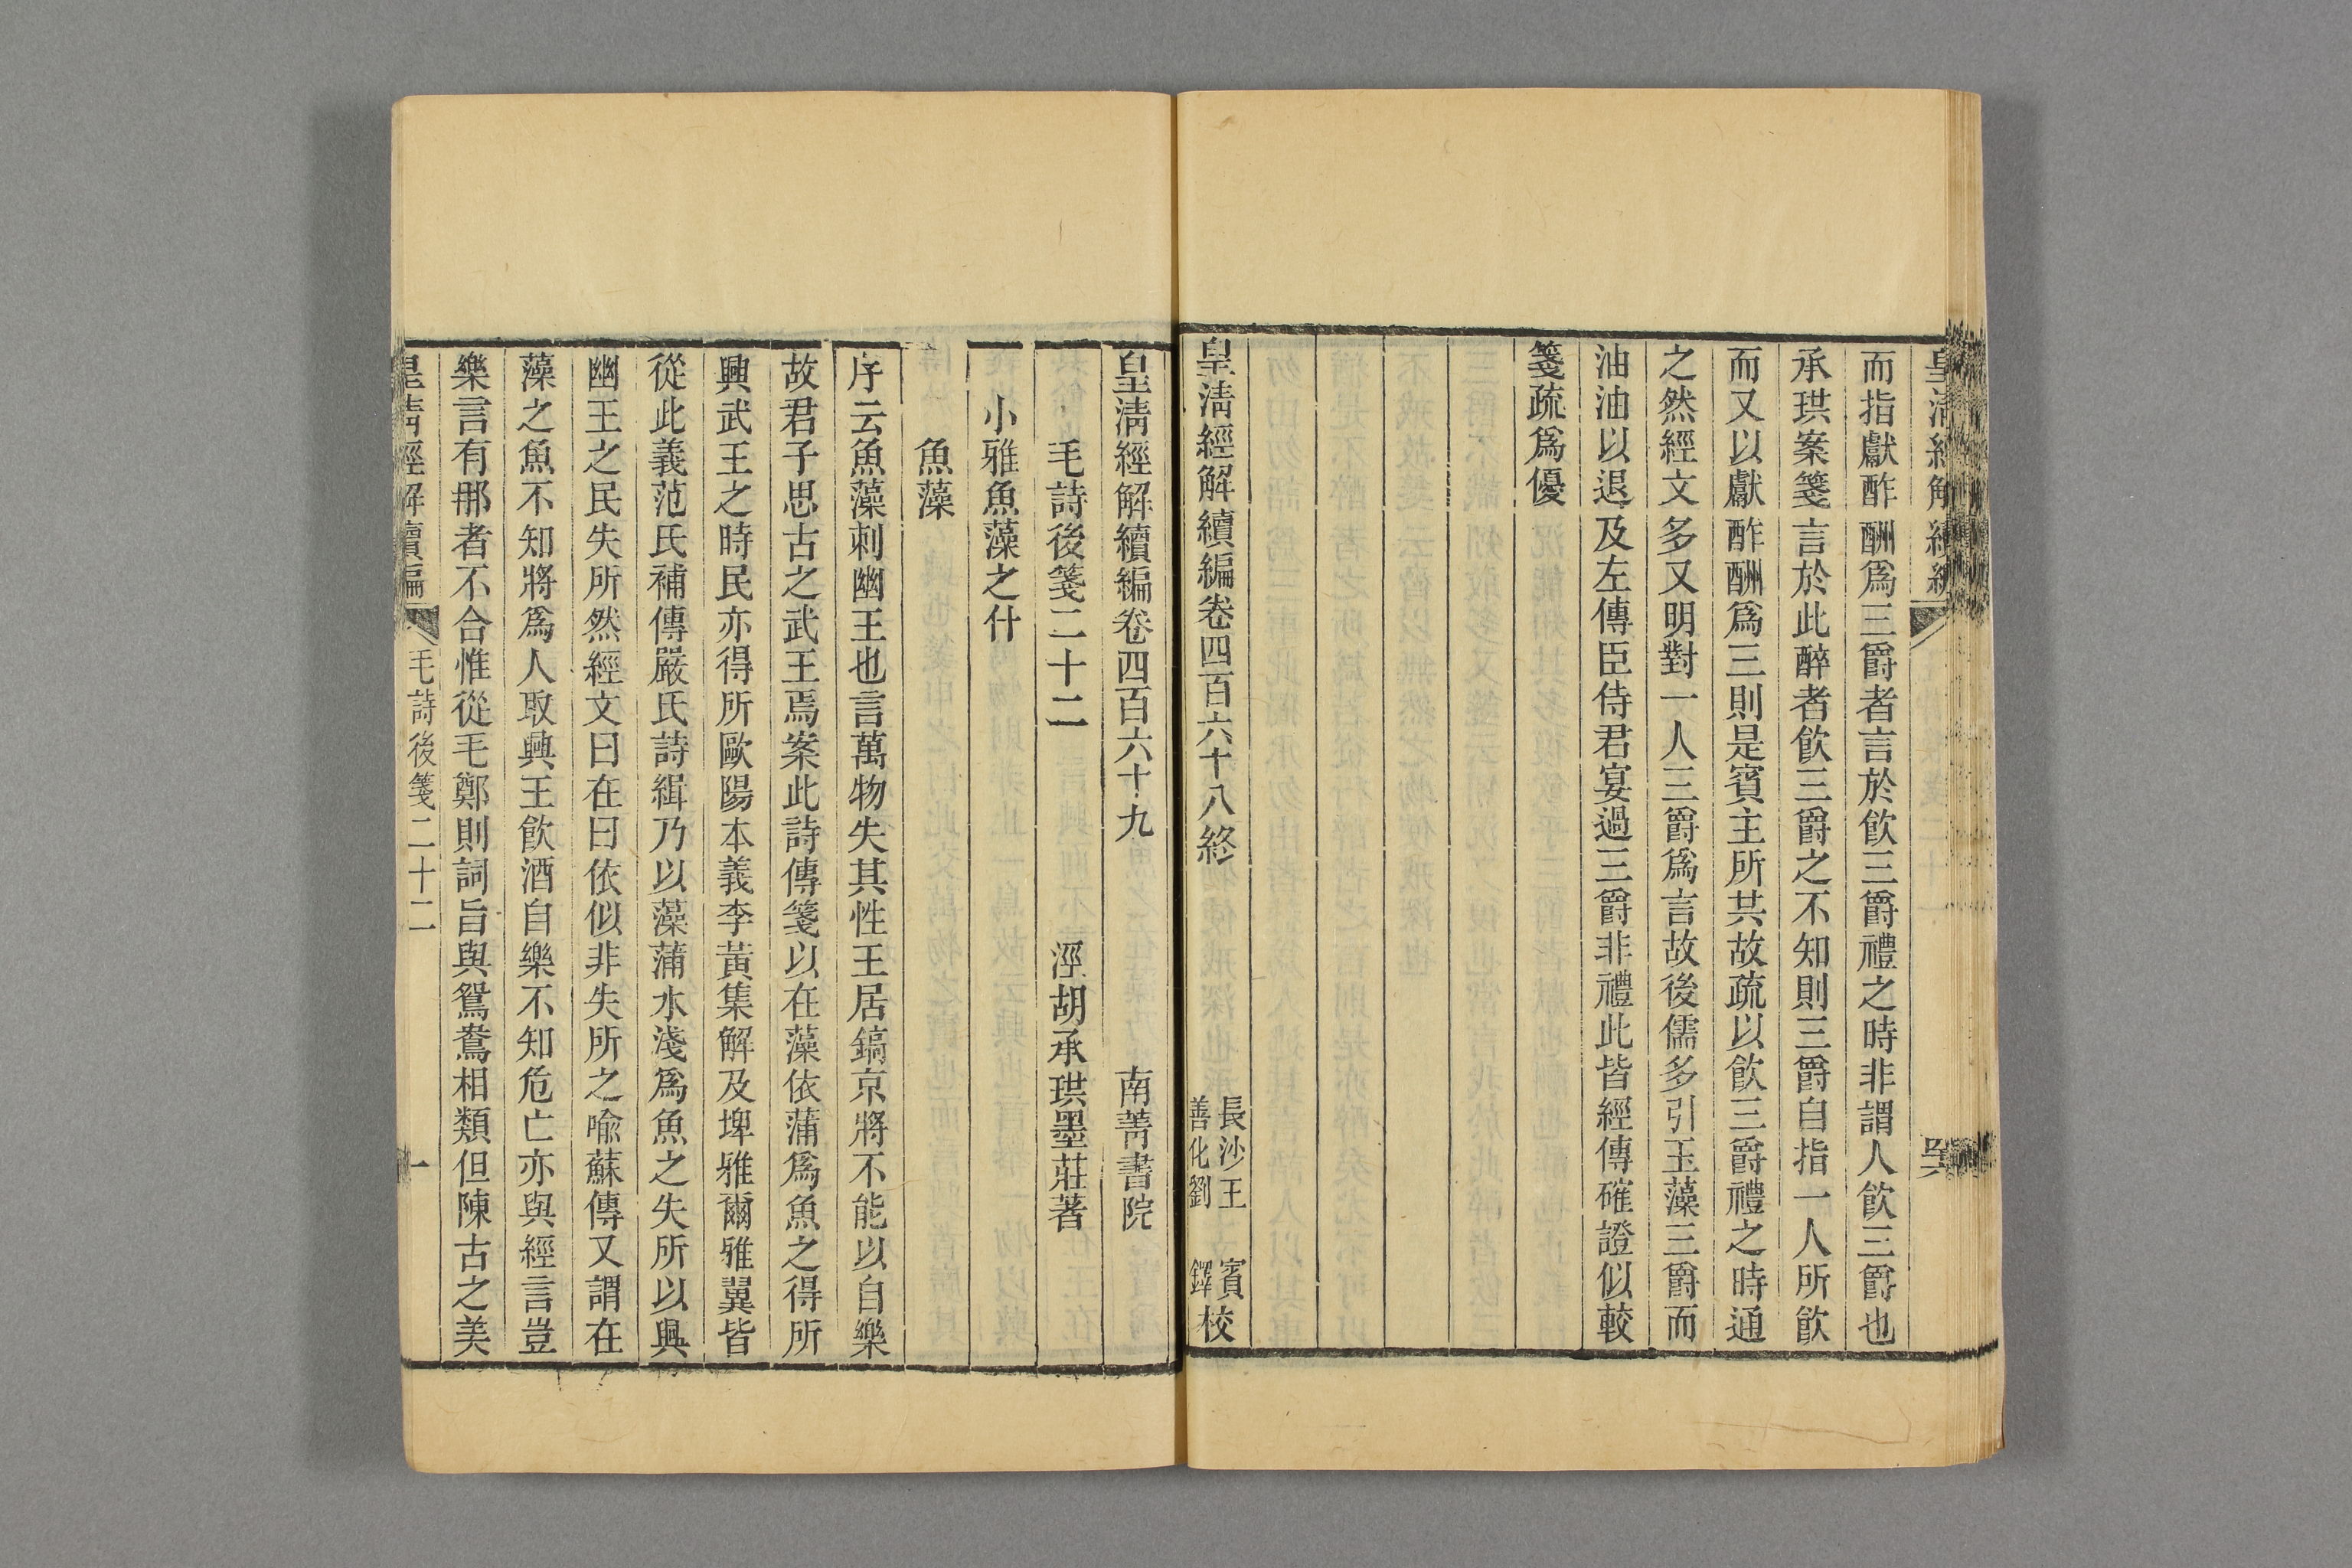 皇清經解續編
而指獻酢酬爲三爵者言於飲三爵禮之時非謂人飲三爵也
承珙案箋言於此醉者飲三爵之不知則三爵自指一人所飲
而又以獻酢酬爲三則是賓主所共故疏以飲三爵禮之時通
之然經文多又明對一人三爵爲言故後儒多引玉藻三爵而
油油以退及左傳臣侍君宴過三爵非禮此皆經傳確證似較
箋疏爲優
皇清經解續編卷四百六十八終
長沙王
善化劉
賓
鐸
校
皇清經解續編卷四百六十九
南菁書院
毛詩後箋二十二
涇胡承珙墨莊著
小雅魚藻之什
魚藻
序云魚藻刺幽王也言萬物失其性王居鎬京將不能以自樂
故君子思古之武王焉案此詩傳箋以在藻依蒲爲魚之得所
興武王之時民亦得所歐陽本義李黃集解及埤雅爾雅翼皆
從此義范氏補傳嚴氏詩緝乃以藻蒲水淺爲魚之失所以興
幽王之民失所然經文曰在曰依似非失所之喻蘇傳又謂在
藻之魚不知將爲人取興王飲酒自樂不知危亡亦與經言豈
樂言有那者不合惟從毛鄭則詞旨與鴛鴦相類但陳古之美
皇清經解續編
毛詩後箋二十二
一